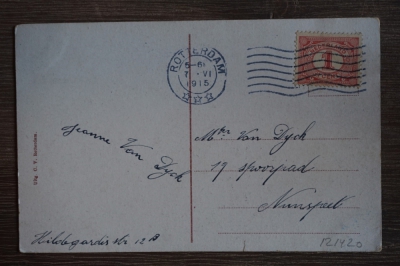 ROTTERDAM
7 . VI
1915
1
Jeanne Van Dyck
Van Dyck
19 spoorpad
Nunspeet
Hildegardis str. 12 B
121420